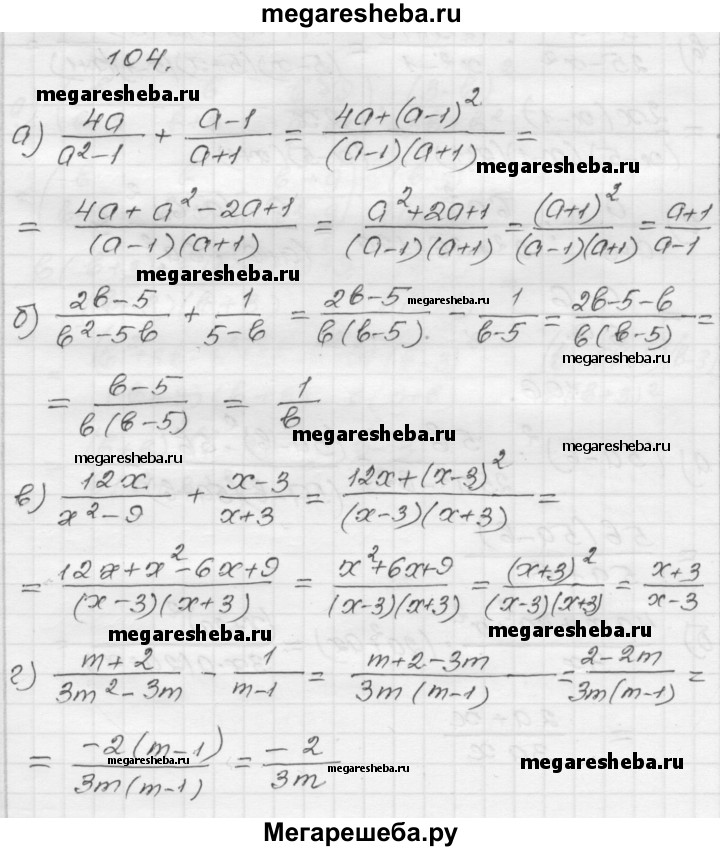 megaresheba.ru
104.
megaresheba.ru
а) 4a/(a²-1) + (a-1)/(a+1) = (4a+(a-1)²)/((a-1)(a+1)) =
megaresheba.ru
= (4a+a²-2a+1)/((a-1)(a+1)) = (a²+2a+1)/((a-1)(a+1)) = (a+1)²/((a-1)(a+1)) = (a+1)/(a-1)
megaresheba.ru
б) (2b-5)/(b²-5b) + 1/(5-b) = (2b-5)/(b(b-5)) - 1/(b-5) = (2b-5-b)/(b(b-5)) =
megaresheba.ru
megaresheba.ru
= (b-5)/(b(b-5)) = 1/b
megaresheba.ru
megaresheba.ru
megaresheba.ru
в) 12x/(x²-9) + (x-3)/(x+3) = (12x+(x-3)²)/((x-3)(x+3)) =
= (12x+x²-6x+9)/((x-3)(x+3)) = (x²+6x+9)/((x-3)(x+3)) = (x+3)²/((x-3)(x+3)) = (x+3)/(x-3)
megaresheba.ru
megaresheba.ru
г) (m+2)/(3m²-3m) - 1/(m-1) = (m+2-3m)/(3m(m-1)) = (2-2m)/(3m(m-1)) =
= -2(m-1)/(3m(m-1)) = -2/(3m)
megaresheba.ru
megaresheba.ru
megaresheba.ru
Мегарешеба.ру